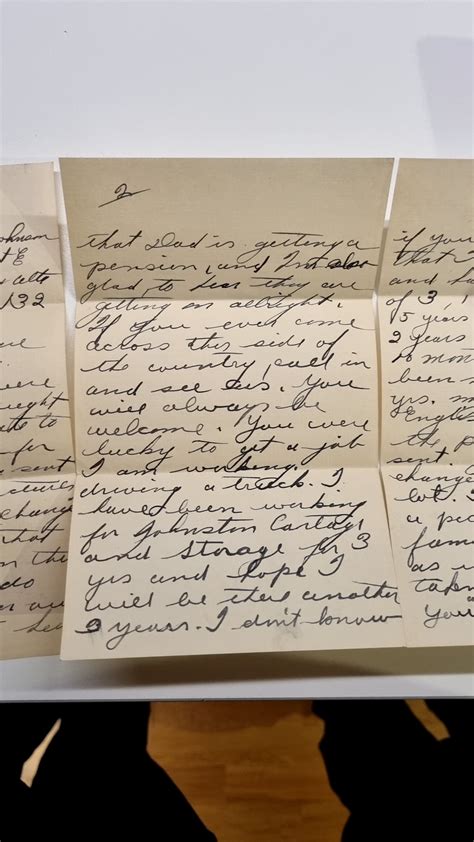 2
that Dad is getting a
pension, and I'm also
glad to hear they are
getting on allright.
If you ever come
across this side of
the country, call in
and see us. You
will always be
welcome. You were
lucky to get a job
I am working,
driving a truck. I
have been working
for Johnston Cartage
and Storage for 3
yrs and hope I
will be there another
3 years. I don't know
132
were
to
for
sent
change
that
do
if you
that
of 3
5 years
2 years
10 mon
been
yrs. m
English
the p
sent
change
lot.
a pic
fami
as
take
you